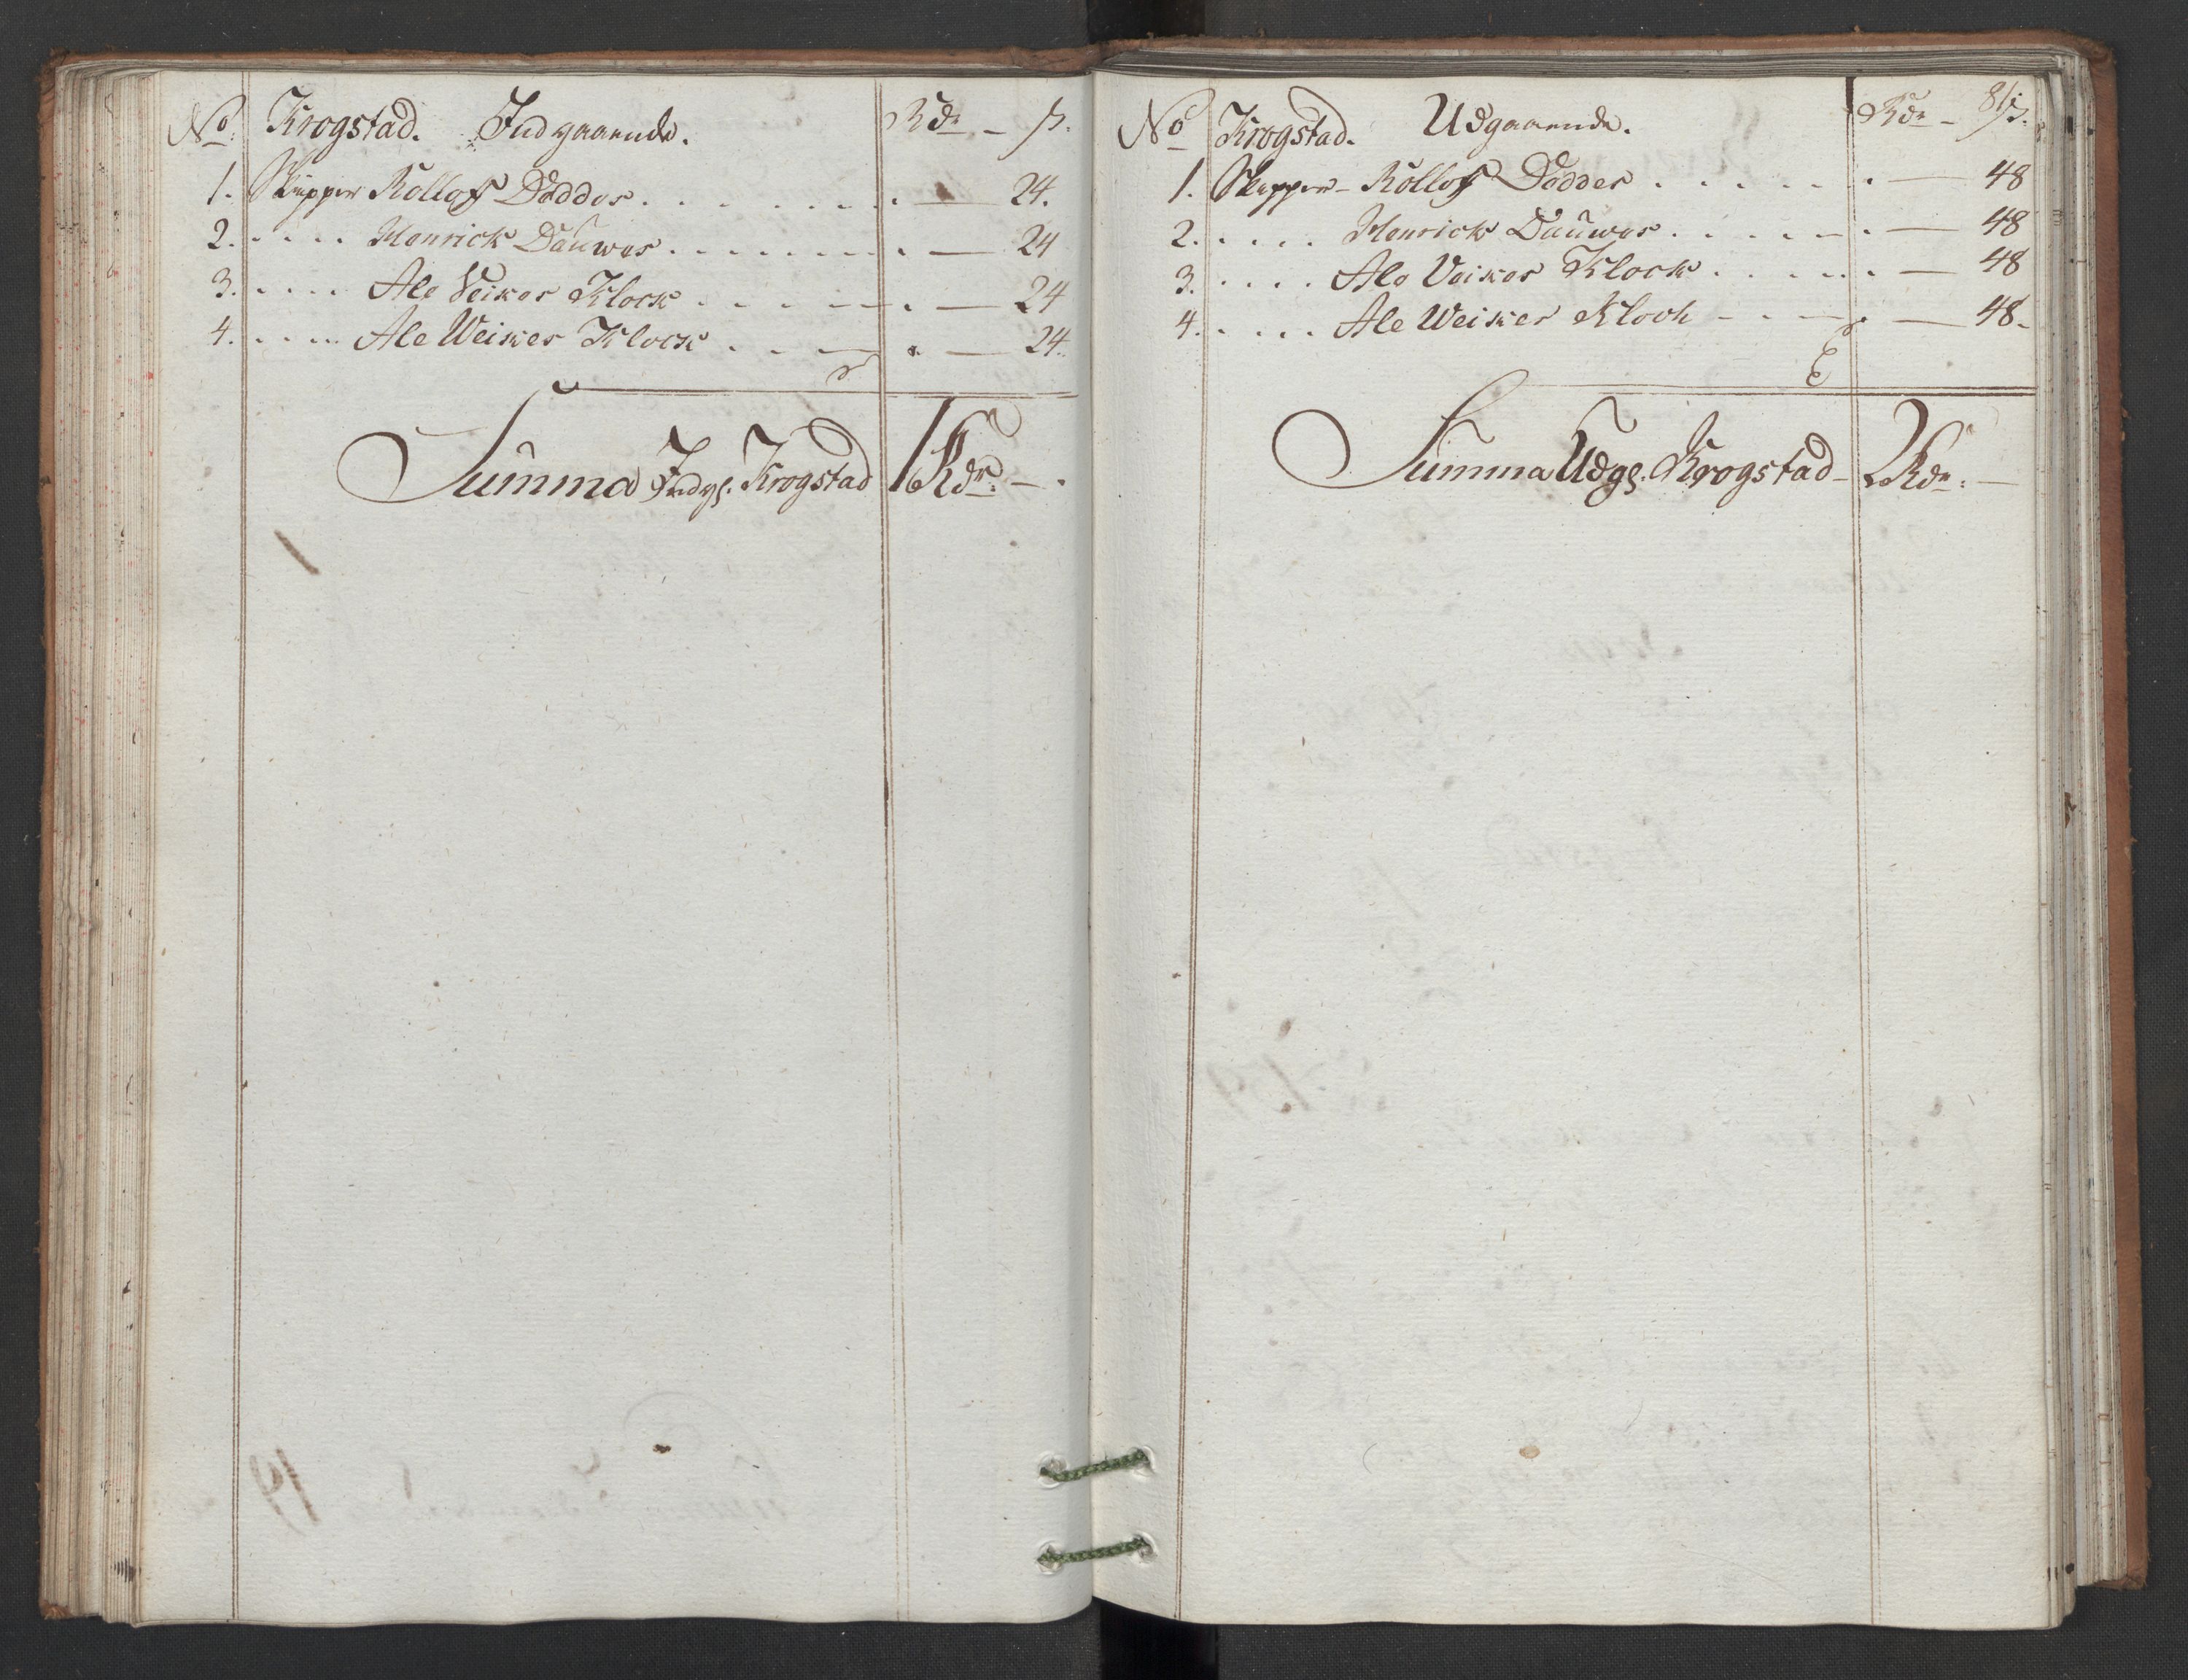 No. Krogstad. Indgaaende. Rdr - ß.
1. Skipper Rollof Doddes . . . . . . . . — 24.
2. . . . . Henrick Dauwes . . . . . . . . — 24
3. . . . . Ale Veikes Klock . . . . . . — 24
4. . . . . Ale Weikes Klock . . . . — 24.
Summa Indg. Krogstad 1 Rdr. - .
81
No Krogstad. Udgaaende. Rdr - ß.
1. Skipper - Rollof Doddes . . . . . . . — 48
2. . . . . Henrick Dauwes . . . . . . — 48
3. . . . . Ale Veikes Klock . . . . . . — 48
4. . . . . Ale Weikes Klock - . . . — 48.
Summa Udg. Krogstad - 2 Rdr. —